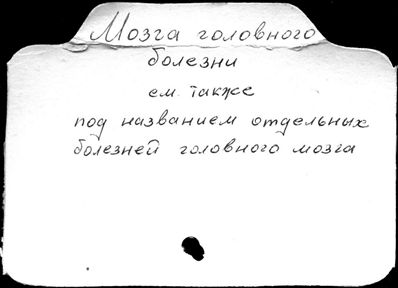 Мозга головного
болезни
см. также
под названием отдельных
болезней головного мозга